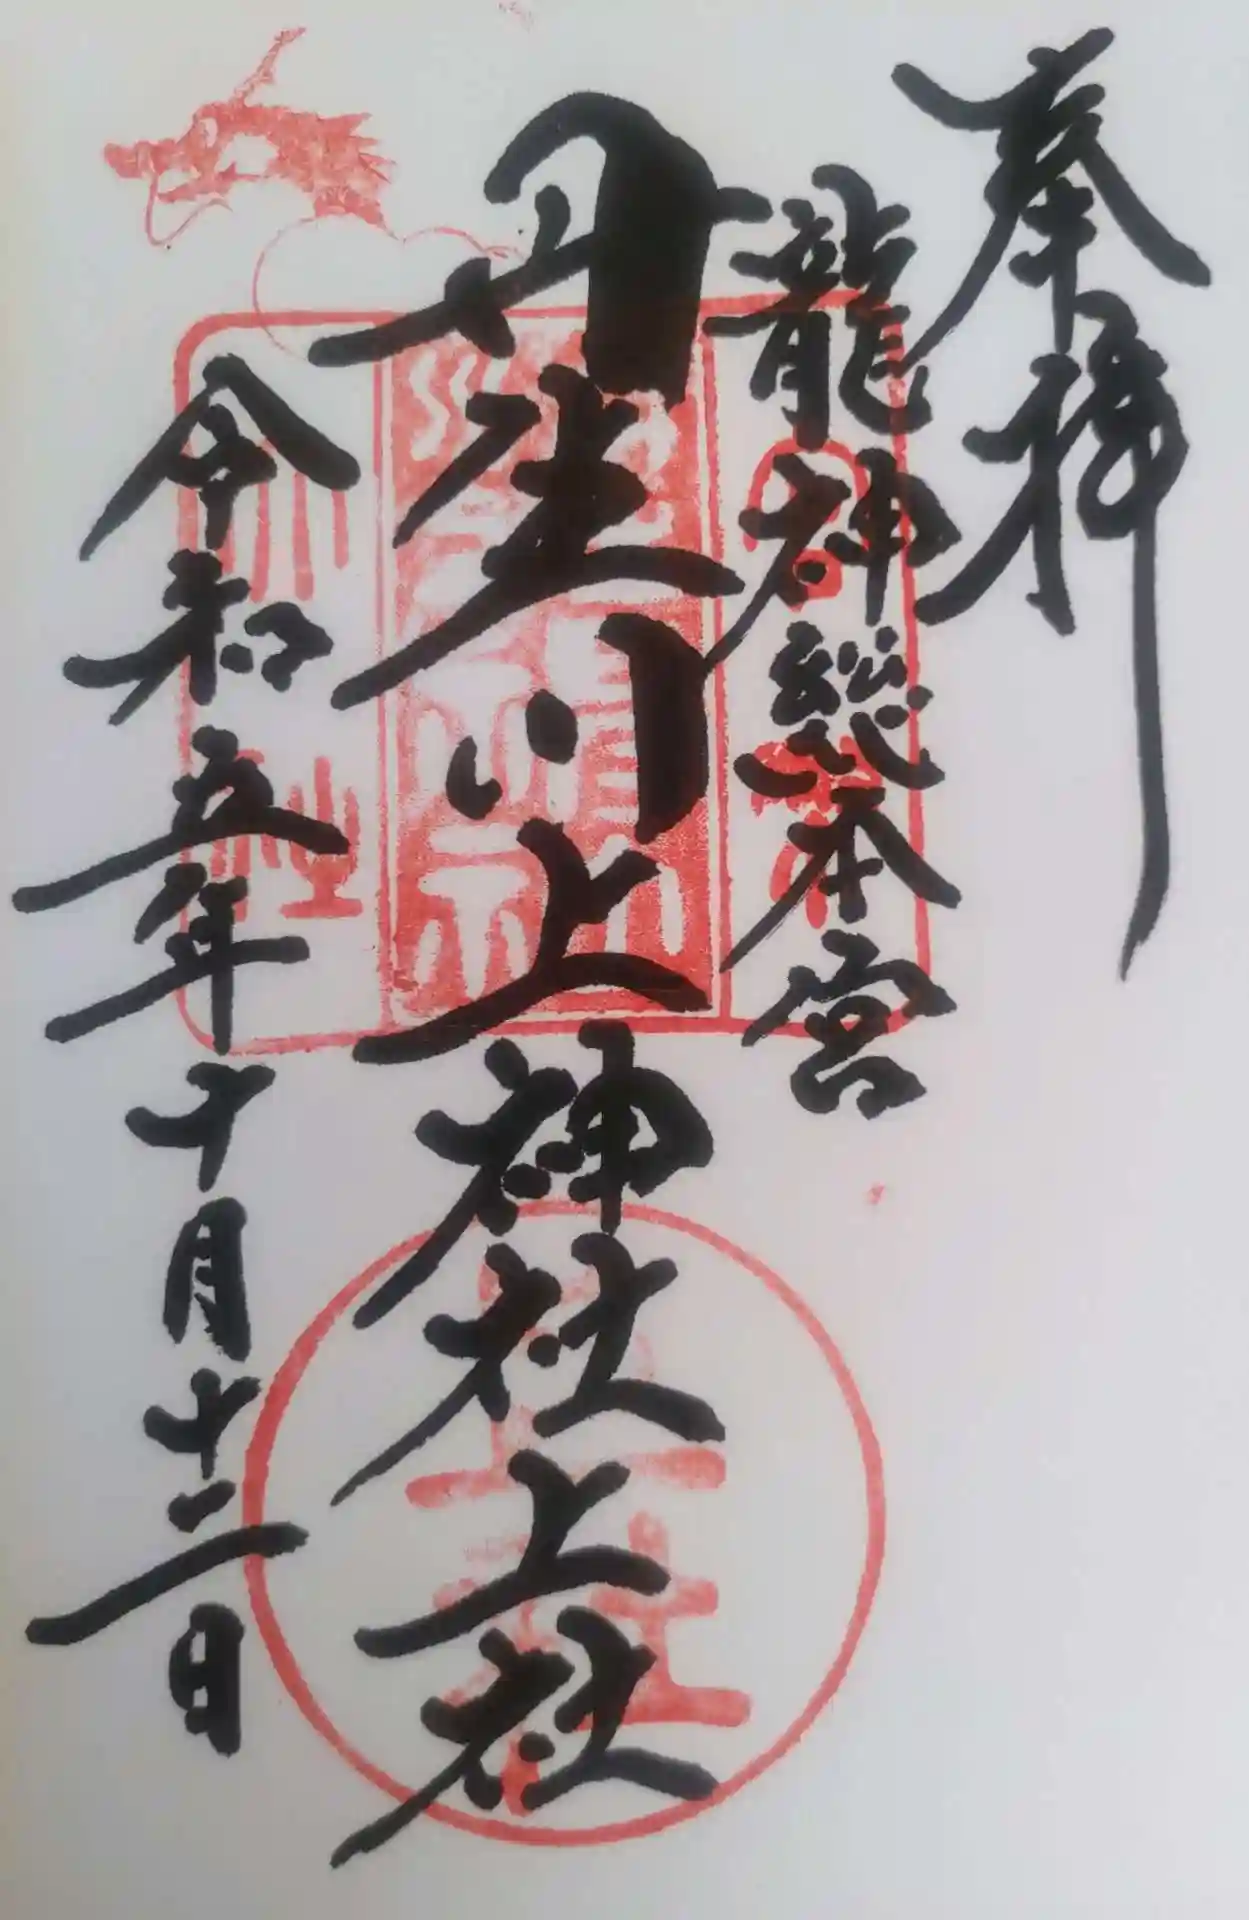 奉拝
龍神総本宮
丹生川上神社上社
令和五年十月十二日
上社